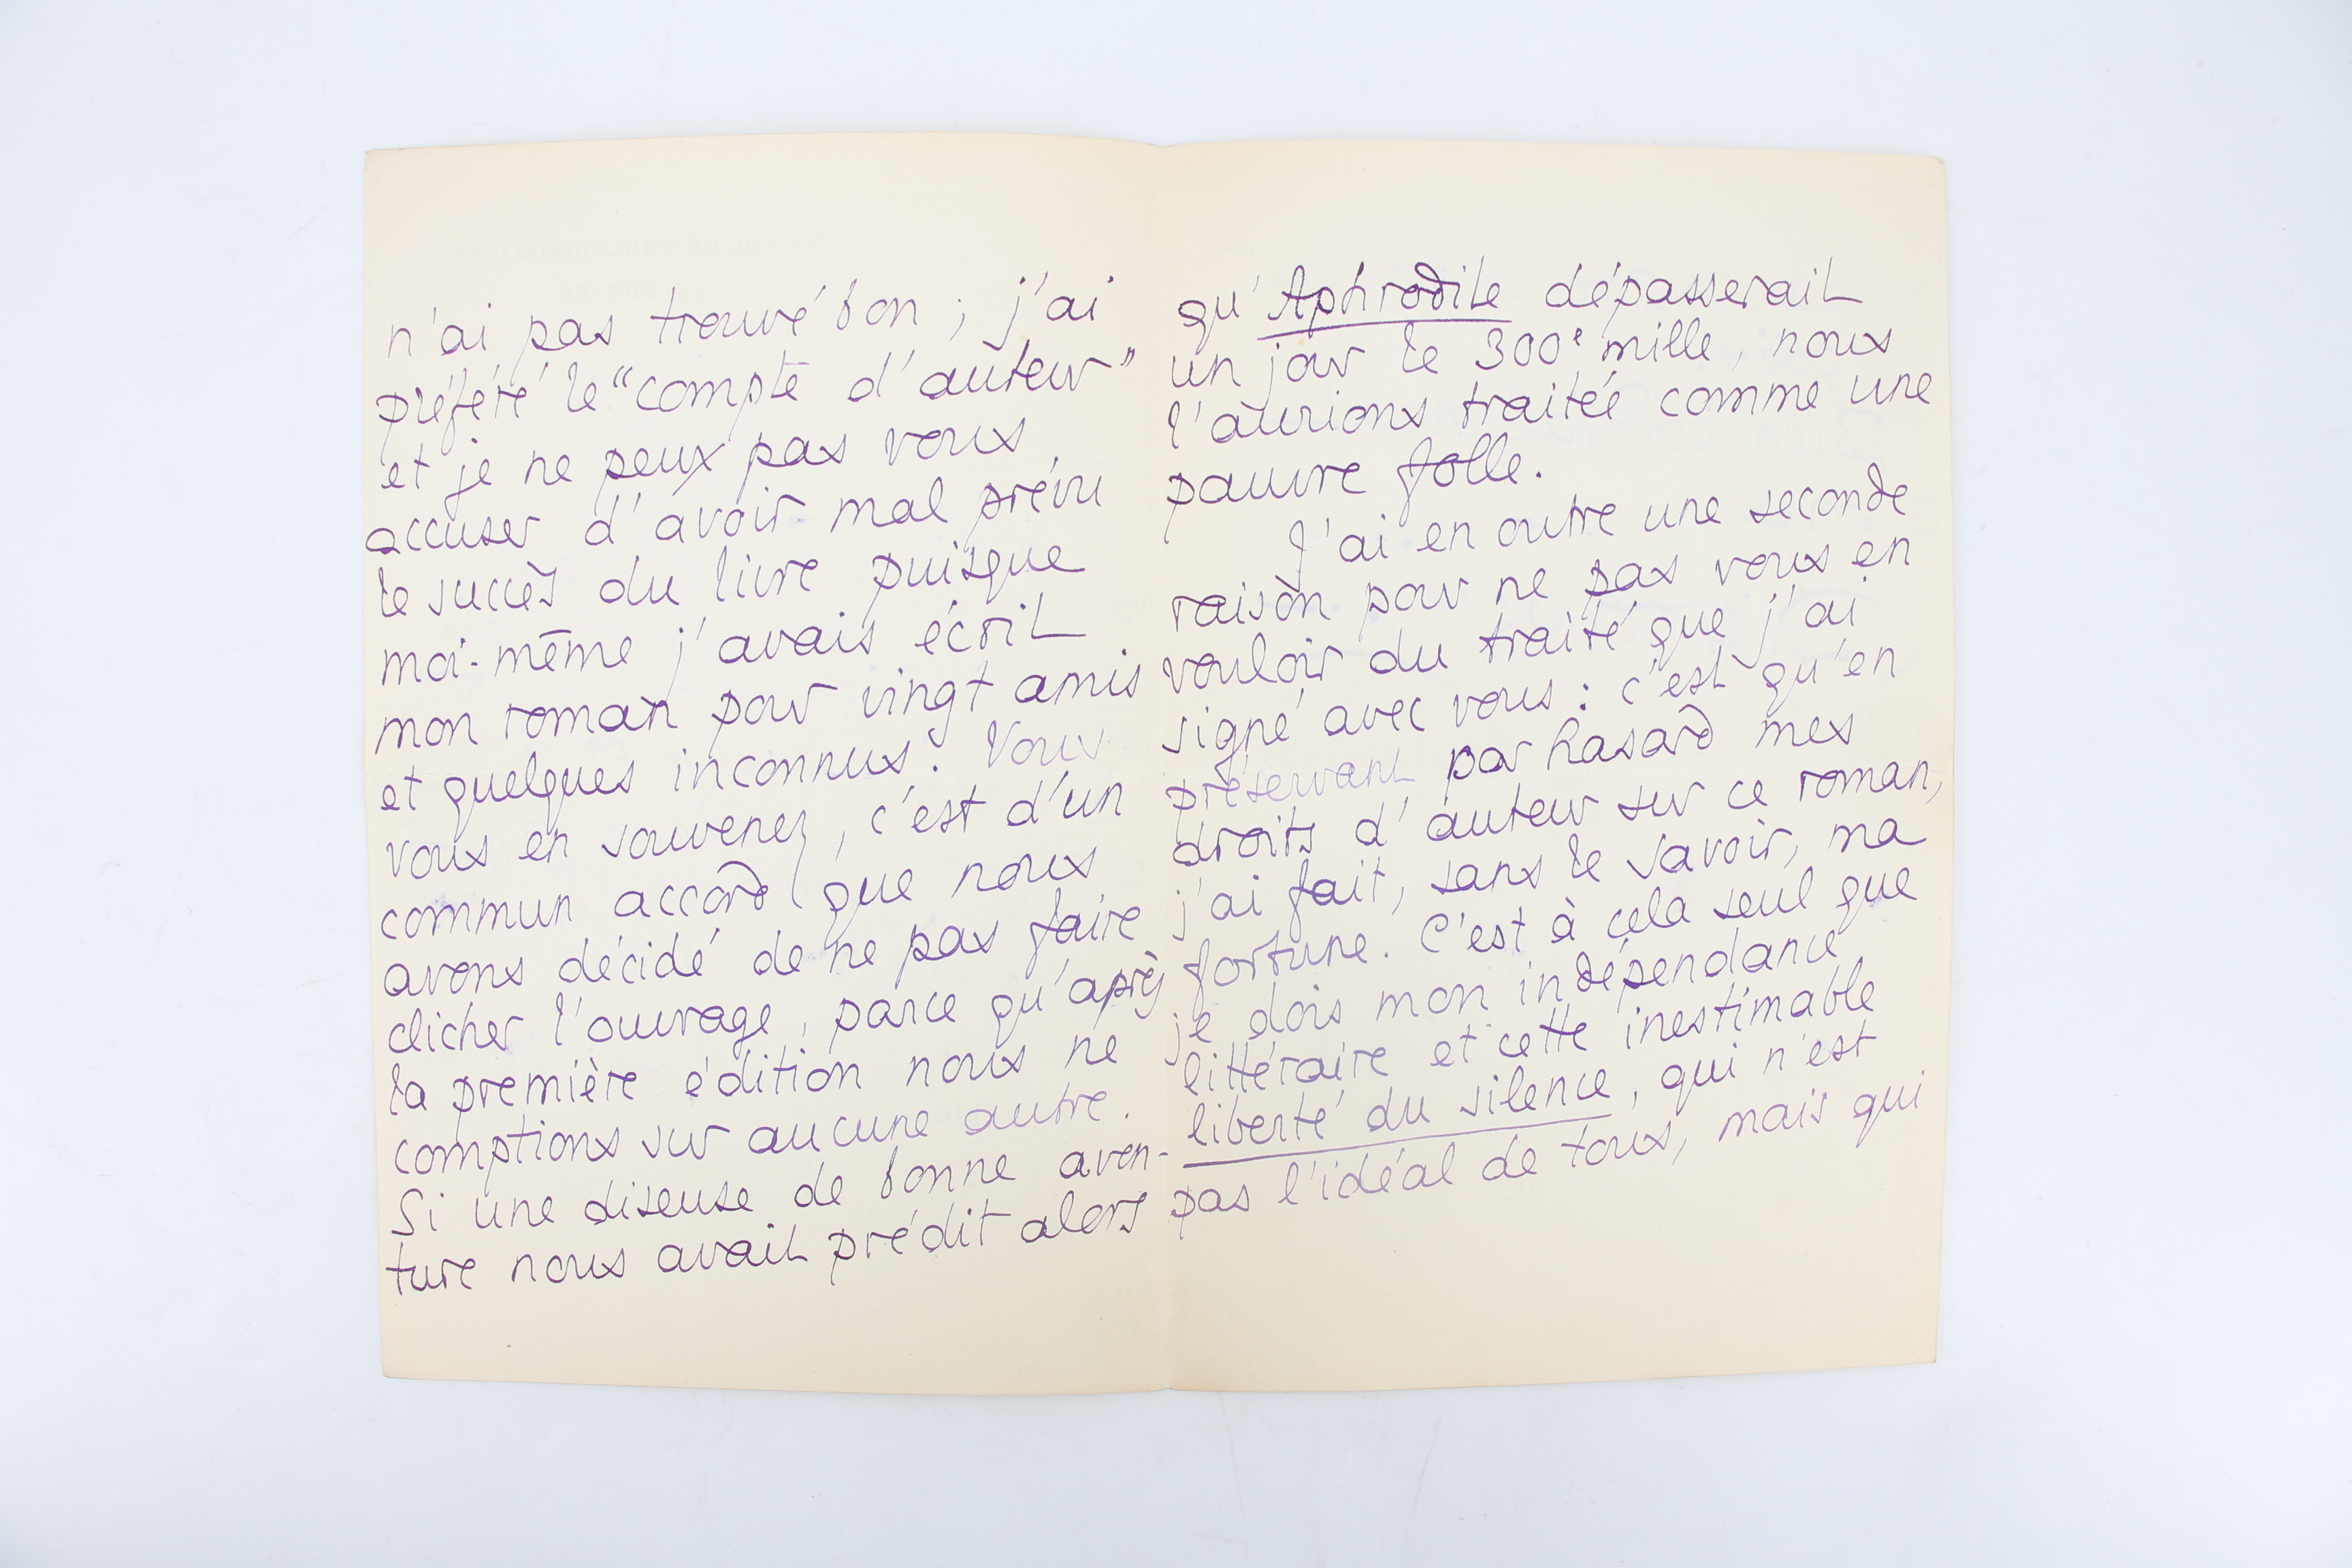 n'ai pas trouvé bon ; j'ai
préféré le "compte d'auteur"
et je ne peux pas vous
accuser d'avoir mal prévu
le succès du livre puisque
moi-même j'avais écrit
mon roman pour vingt amis
et quelques inconnus. Vous
vous en souvenez, c'est d'un
commun accord que nous
avons décidé de ne pas faire
clicher l'ouvrage, parce qu'après
la première édition nous ne
comptions sur aucune autre.
Si une diseuse de bonne aven-
ture nous avait prédit alors
qu'Aphrodite dépasserait
un jour le 300e mille, nous
l'aurions traitée comme une
pauvre folle.
J'ai en outre une seconde
raison pour ne pas vous en
vouloir du traité que j'ai
signé avec vous : c'est qu'en
préservant par hasard mes
droits d'auteur sur ce roman,
j'ai fait, sans le savoir, ma
fortune. C'est à cela seul que
je dois mon indépendance
littéraire et cette inestimable
liberté du silence, qui n'est
pas l'idéal de tous, mais qui